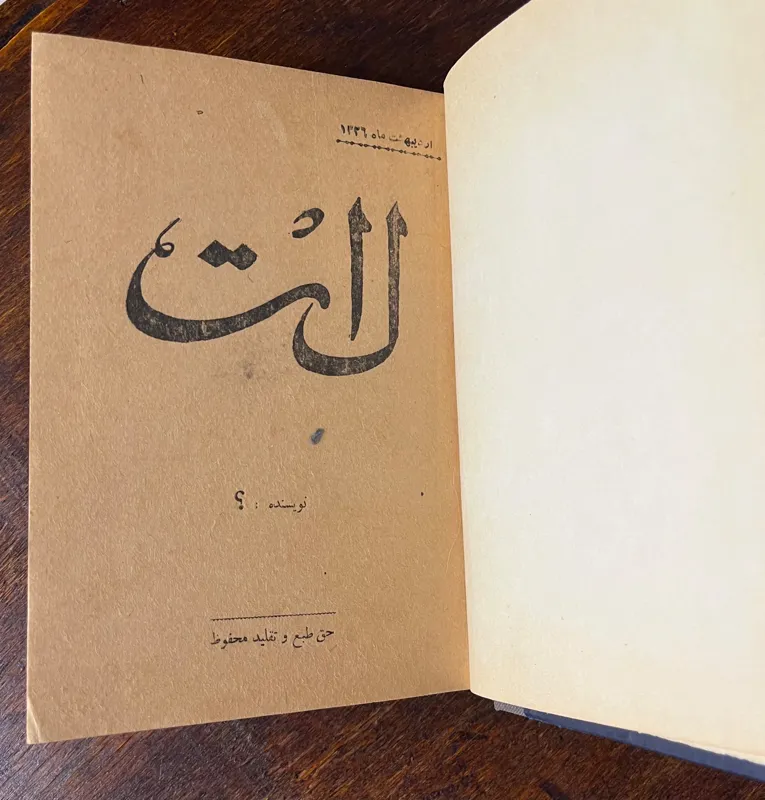 اردیبهشت ماه ۱۳۳۶
لات
نویسنده : ؟
حق طبع و تقلید محفوظ